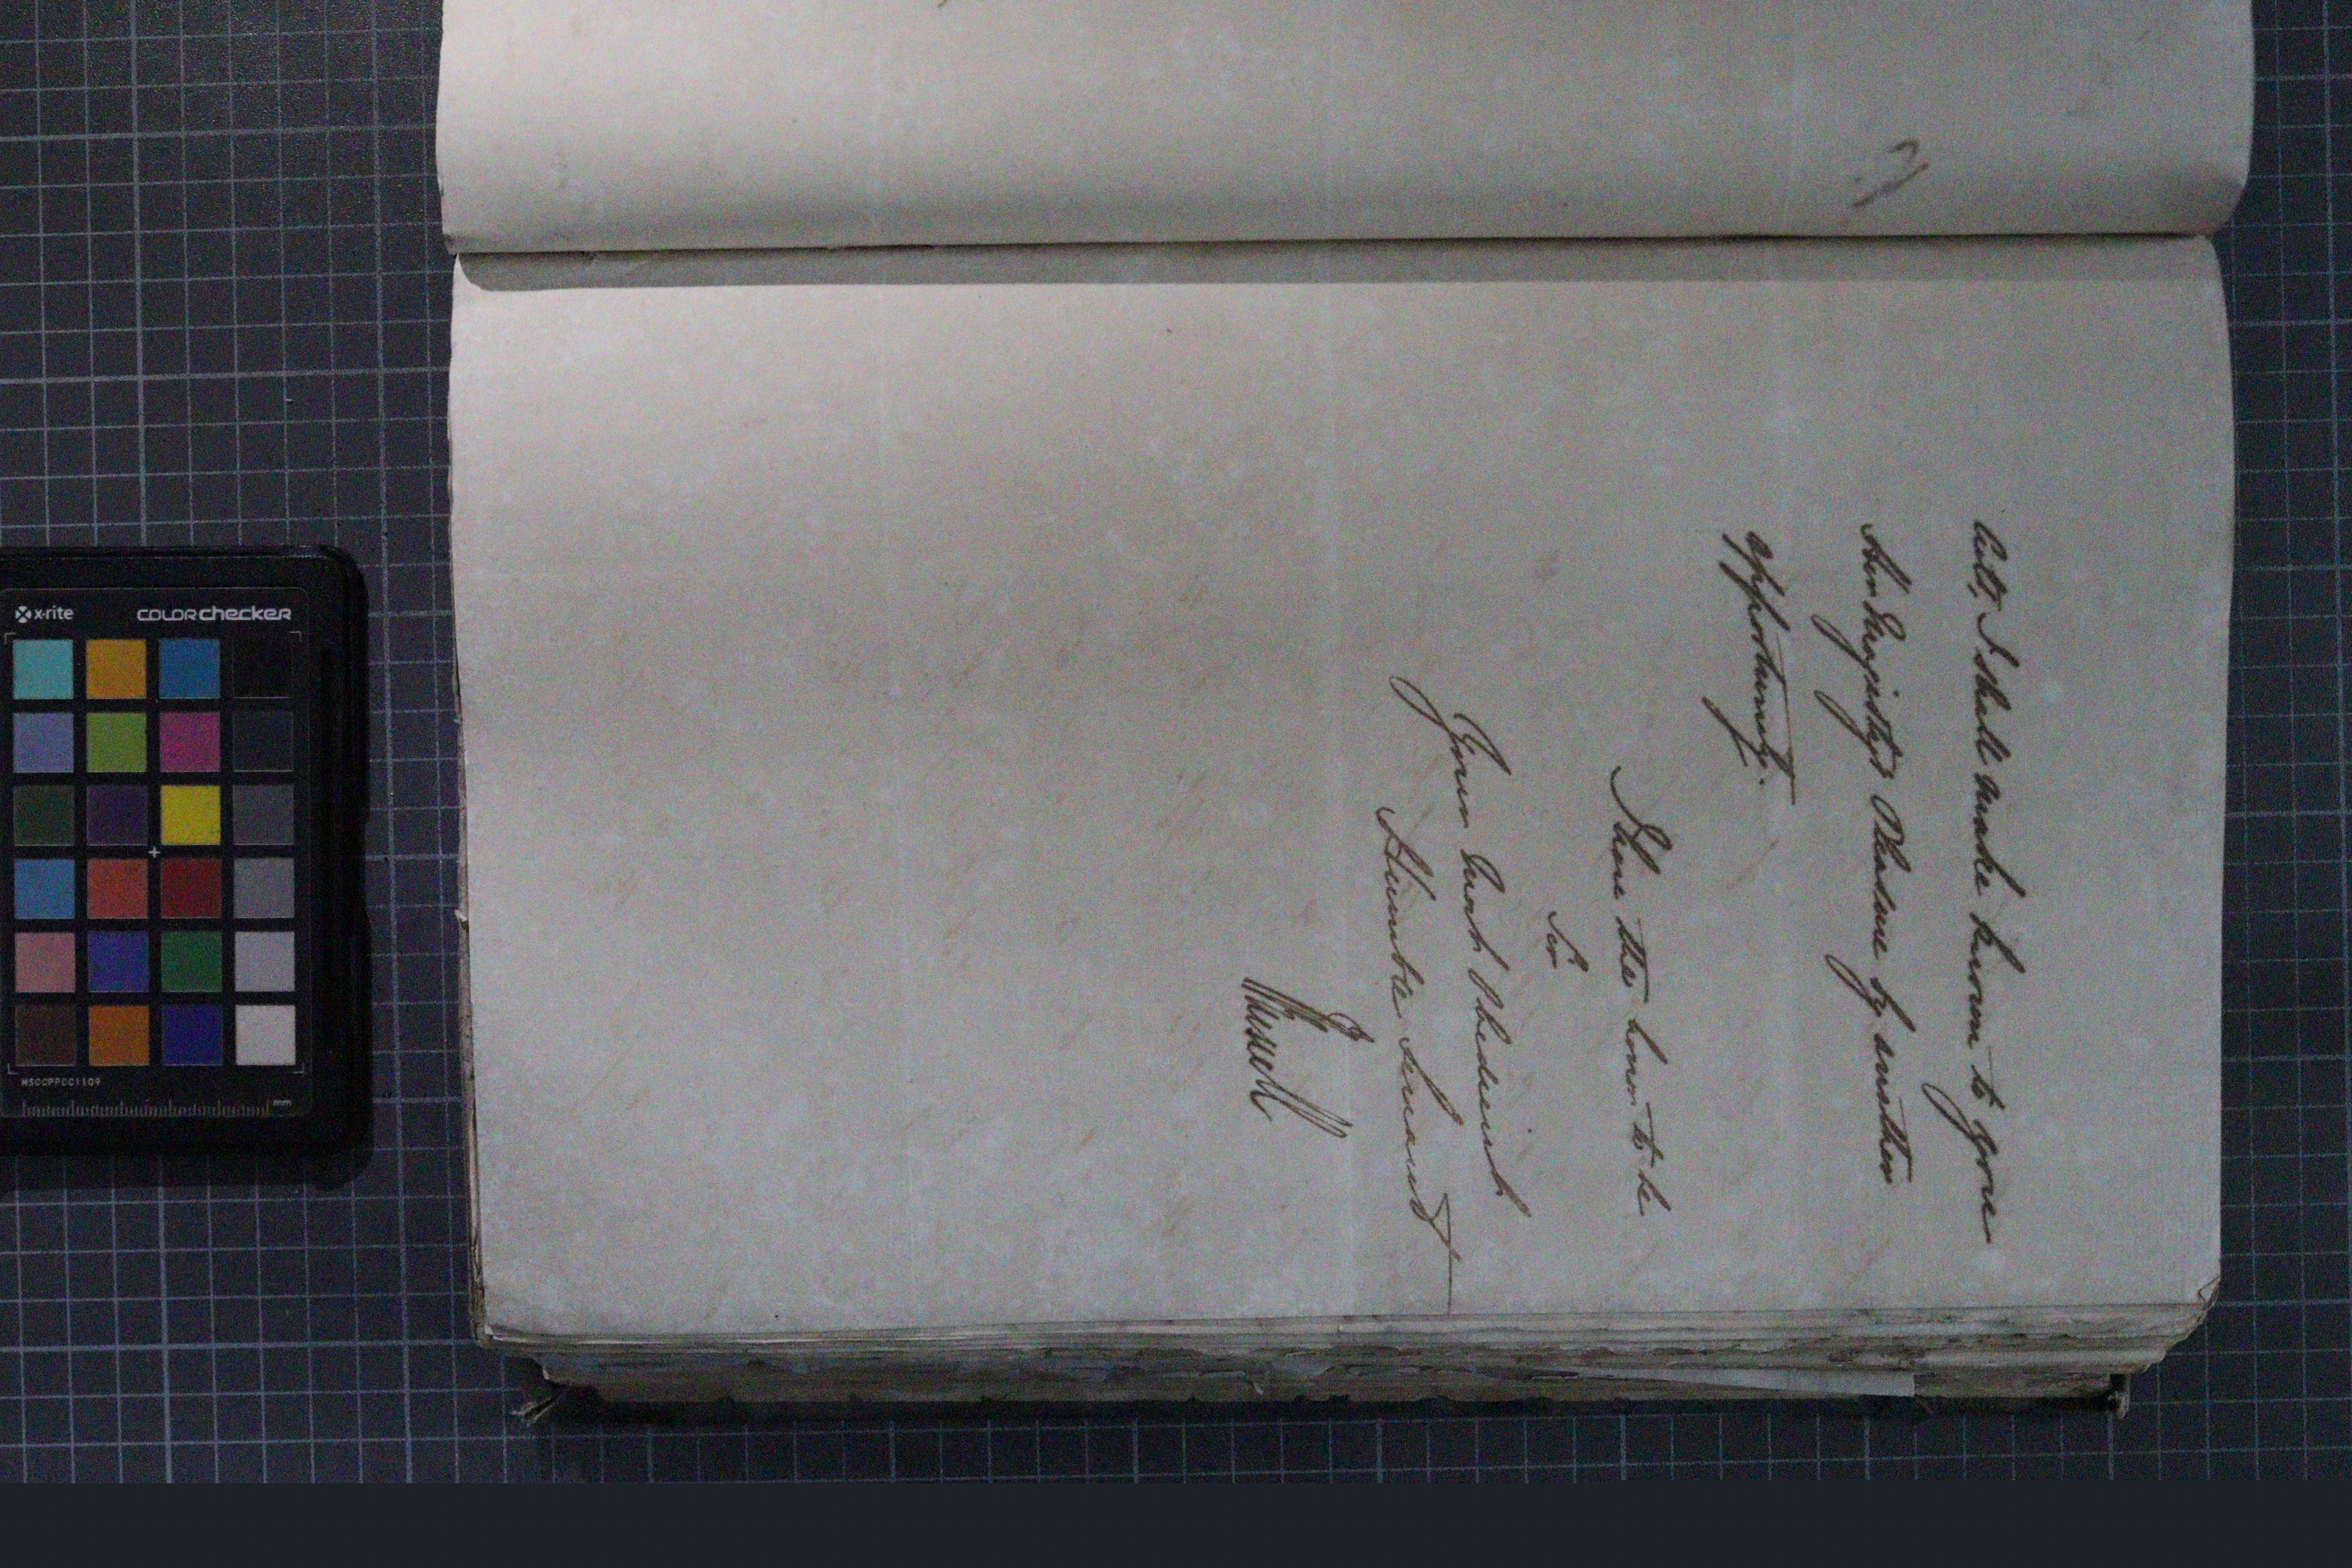 Act, I shall make known to you
Her Majesty's Pleasure by another
opportunity.
I have the honor to be
Sir
Your most Obedient
Humble Servant
J Russell
x-rite
COLORchecker
MSCCPPCC1109
mm